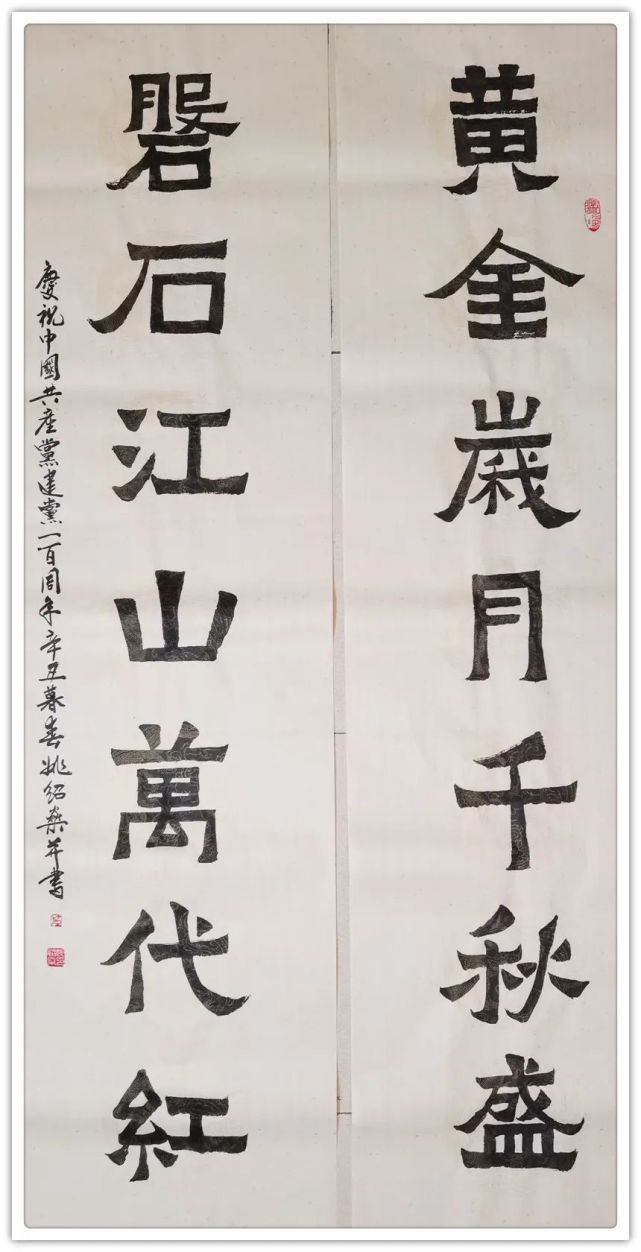 黃金歳月千秋盛
磐石江山萬代紅
慶祝中國共產黨建黨一百周年辛丑暮春姚紹燊并書